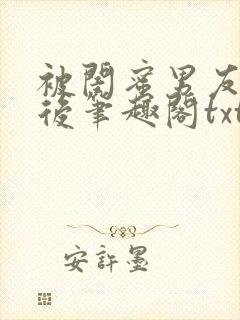 被閨蜜男友
後筆趣閣txt
安許墨